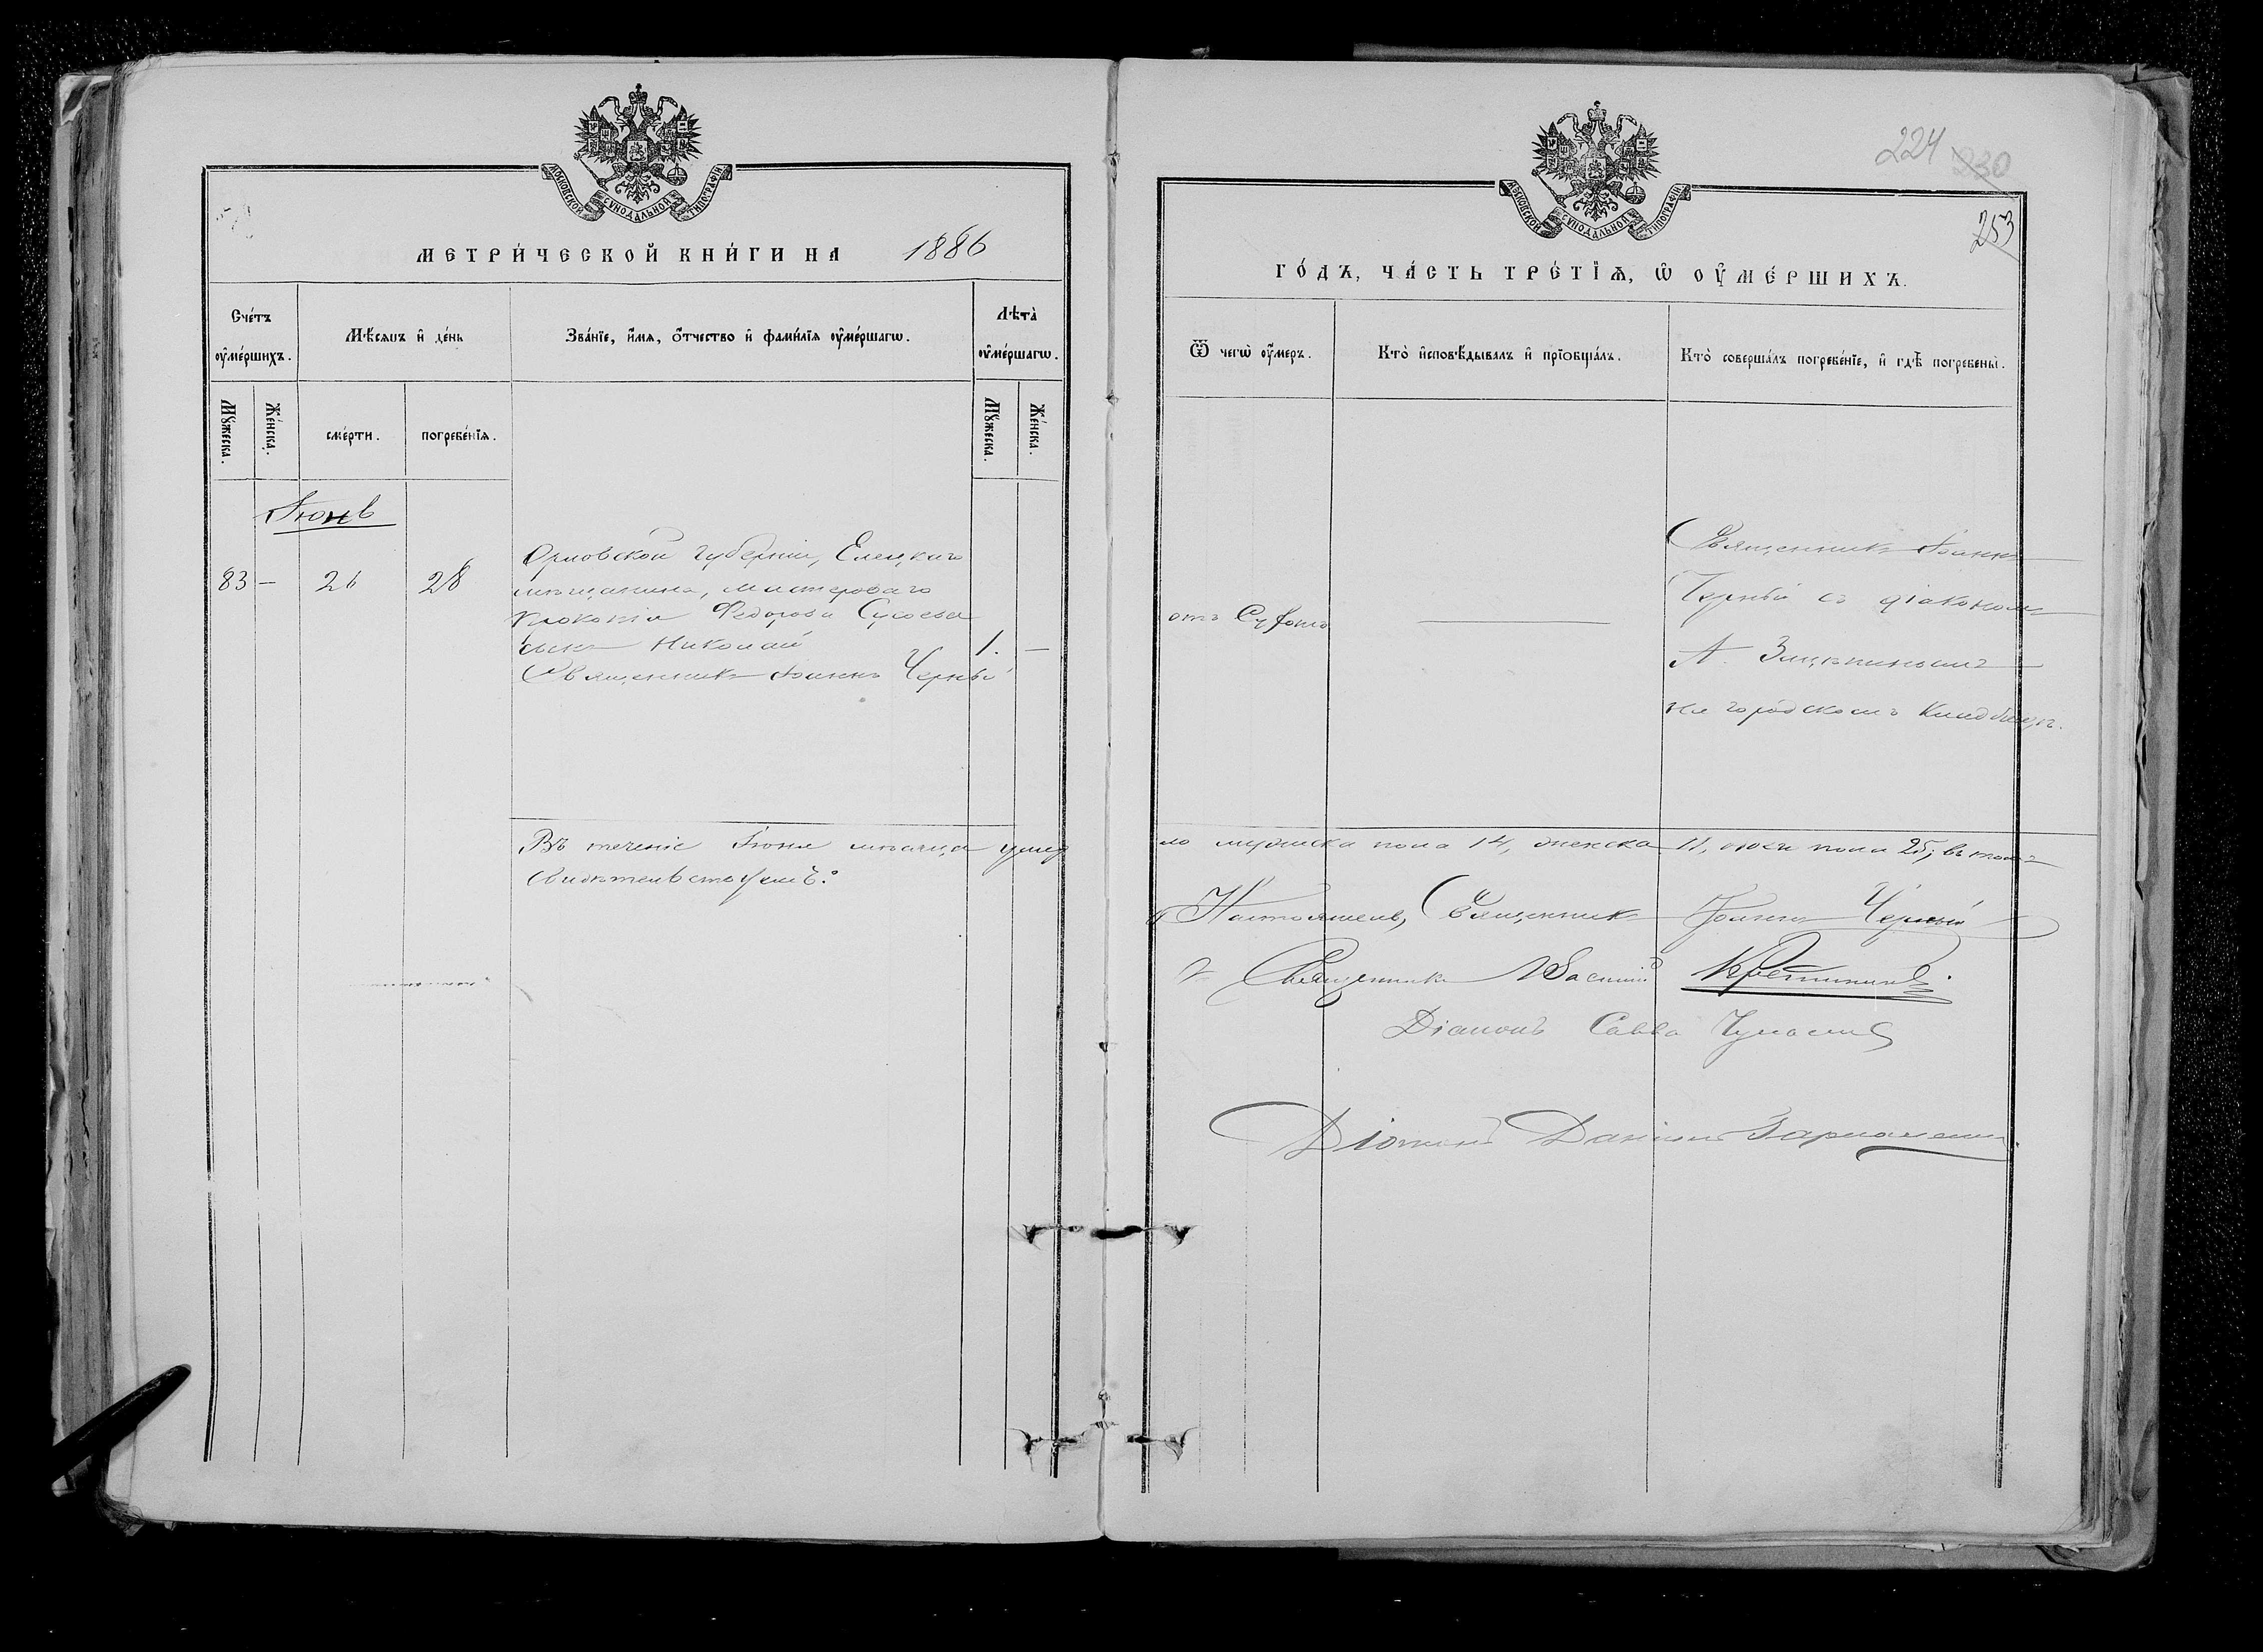 МОСКОВСКОЙ СѴНОДАЛЬНОЙ ТИПОГРАФІИ
МЕТРИ́ЧЕСКОЙ КНИ́ГИ НА 1886
Сче́тъ ᲂу҆ме́ршихъ.
Мѣ́сяцъ и҆ де́нь
Зва́нїе, и҆́мя, ѻ҆́тчество и҆ фами́лїя ᲂу҆ме́ршагѡ.
Лѣта̀ ᲂу҆ме́ршагѡ.
Мꙋ́жеска.
Же́нска.
сме́рти.
погребе́нїя.
Мꙋ́жеска.
Же́нска.
Іюнь
83 — 26 28
Орловской губерніи, Елецкаго
мѣщанина, мастероваго
Прокопія Федорова
сынъ Николай 1. —
Священникъ Іоаннъ Черный
Въ теченіе Іюня мѣсяца умер
свидѣтельствуемъ:
МОСКОВСКОЙ СѴНОДАЛЬНОЙ ТИПОГРАФІИ
224 230
253
ГО́ДЪ, ЧА́СТЬ ТРЕ́ТЇѦ, Ѡ҆ ОУ҆МЕ́РШИХЪ.
Ѿ чегѡ̀ ᲂу҆́меръ.
Кто̀ и҆сповѣ́дывалъ и҆ прїобща́лъ.
Кто̀ соверша́лъ погребе́нїе, и҆ гдѣ̀ погребены̀.
отъ
Священникъ Іоаннъ
Черный съ діакономъ
А.
на городскомъ кладбищѣ.
ло мужеска пола 14, женска 11, обоего пола 25; въ томъ
Настоятель, Священникъ Іоаннъ Черный
Священникъ Василій
Діаконъ Савва
Діаконъ Даніилъ